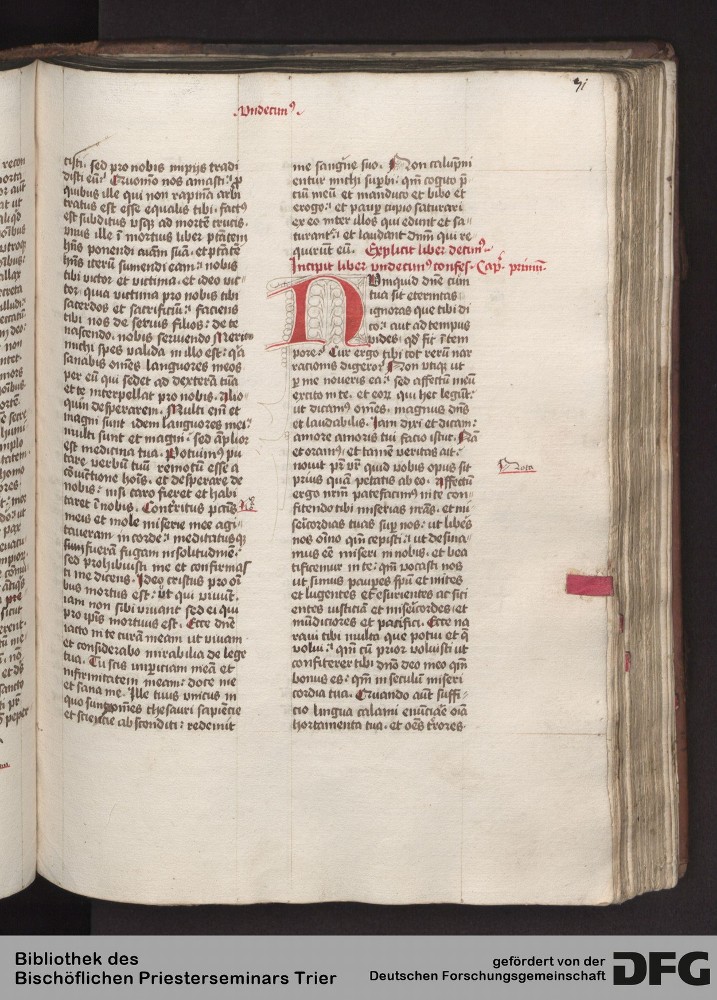 Undecim⁹
71
cisti. sed pro nobis impijs tradi
disti eū. Quomō nos amasti. ꝓ
quibus ille qui non rapinā arbi
tratus est esse equalis tibi. fact⁹
est subditus vsqꝫ ad mortē crucis.
vnus ille ī mortuis liber ptātem
hn̄s ponendi aīam suā. et ptātē
hn̄s iterū sumendi eam. nobis
tibi victor et victima. et ideo vic
tor. quia victima pro nobis tibi
sacerdos et sacrificiū. faciens
tibi nos de seruis filios. de te
nascendo. nobis seruiendo Merito
michi spes valida in illo est. qꝛ
sanabis om̄es languores meos
per eū qui sedet ad dexterā tuā
et te interpellat pro nobis. Alio
quin desperarem. Multi em̄ et
magni sunt idem languores mei.
multi sunt et magni. sed āplior
est medicina tua. Potuim⁹ pu
tare verbū tuū remotū esse a
cōiūctione hoīs. et desperare de
nobis. nisi caro fieret et habi
taret ī nobis. Conterritus pctīs
meis et mole miserie mee agi
taueram in corde. meditatusqꝫ
fuerā fugam in solitudinē.
sed prohibuisti me et confirmas
ti me dicens. Ideo cristus pro oī
bus mortuus est. vt qui viuūt.
iam non sibi viuant sed ei qui
pro ip̄is mortuus est. Ecce dn̄e
iacto in te curā meam vt viuam
et considerabo mirabilia de lege
tua. Tu scis inpericiam meā et
infirmitatem meam. doce me
et sana me. Ille tuus vnicus in
quo sunt om̄es thesauri sapiēcie
et sciēcie absconditi. redemit
me sangīne suo. Non calūpni
entur michi supbi. qm̄ cogito p̄
ciū meū et manduco et bibo et
erogo. et paup cupio saturari
ex eo inter illos qui edunt et sa
turantꝛ. et laudant dnm̄ qui re
quirūt eū. Explicit liber decim⁹
Incipit liber vndecim⁹ confes. Cap. primū.
Numquid dn̄e cum
tua sit eternitas
ignoras que tibi di
co. aut ad tempus
vides. qd̄ fit ī tem
pore. Cur ergo tibi tot rerū nar
rationes digero. Non vtiqꝫ vt
p me noueris ea. sed affectū meū
excito in te. et eorꝫ qui hec legūt.
vt dicam⁹ om̄es. magnus dn̄s
et laudabilis. Iam dixi et dicam.
amore amoris tui facio istut. Nā
et oram⁹. et tamē veritas ait.
nouit pr̄ vr̄ quid vobis opus sit
prius quā petatis ab eo. Affectū
ergo nr̄m patefacim⁹ in te con
fitendo tibi miserias nr̄as. et mi
sericordias tuas sup nos. vt libēs
nos oīno qm̄ cepisti. vt desina
mus eē miseri in nobis. et bea
tificemur in te. qm̄ vocasti nos
vt simus paupes spū et mites
et lugentes et esurientes ac siti
entes iusticiā et misericordes et
mūdicordes et pacifici. Ecce na
raui tibi multa que potui et q̄
volui. qm̄ tu prior voluisti vt
confiterer tibi dn̄o deo meo qm̄
bonus es. qm̄ in seculū miseri
cordia tua. Quando aūt suffi
cio lingua calami enūciare oīa
hortamenta tua. et oēs terrores
Nota
Bibliothek des
Bischöflichen Priesterseminars Trier
gefördert von der
Deutschen Forschungsgemeinschaft
DFG